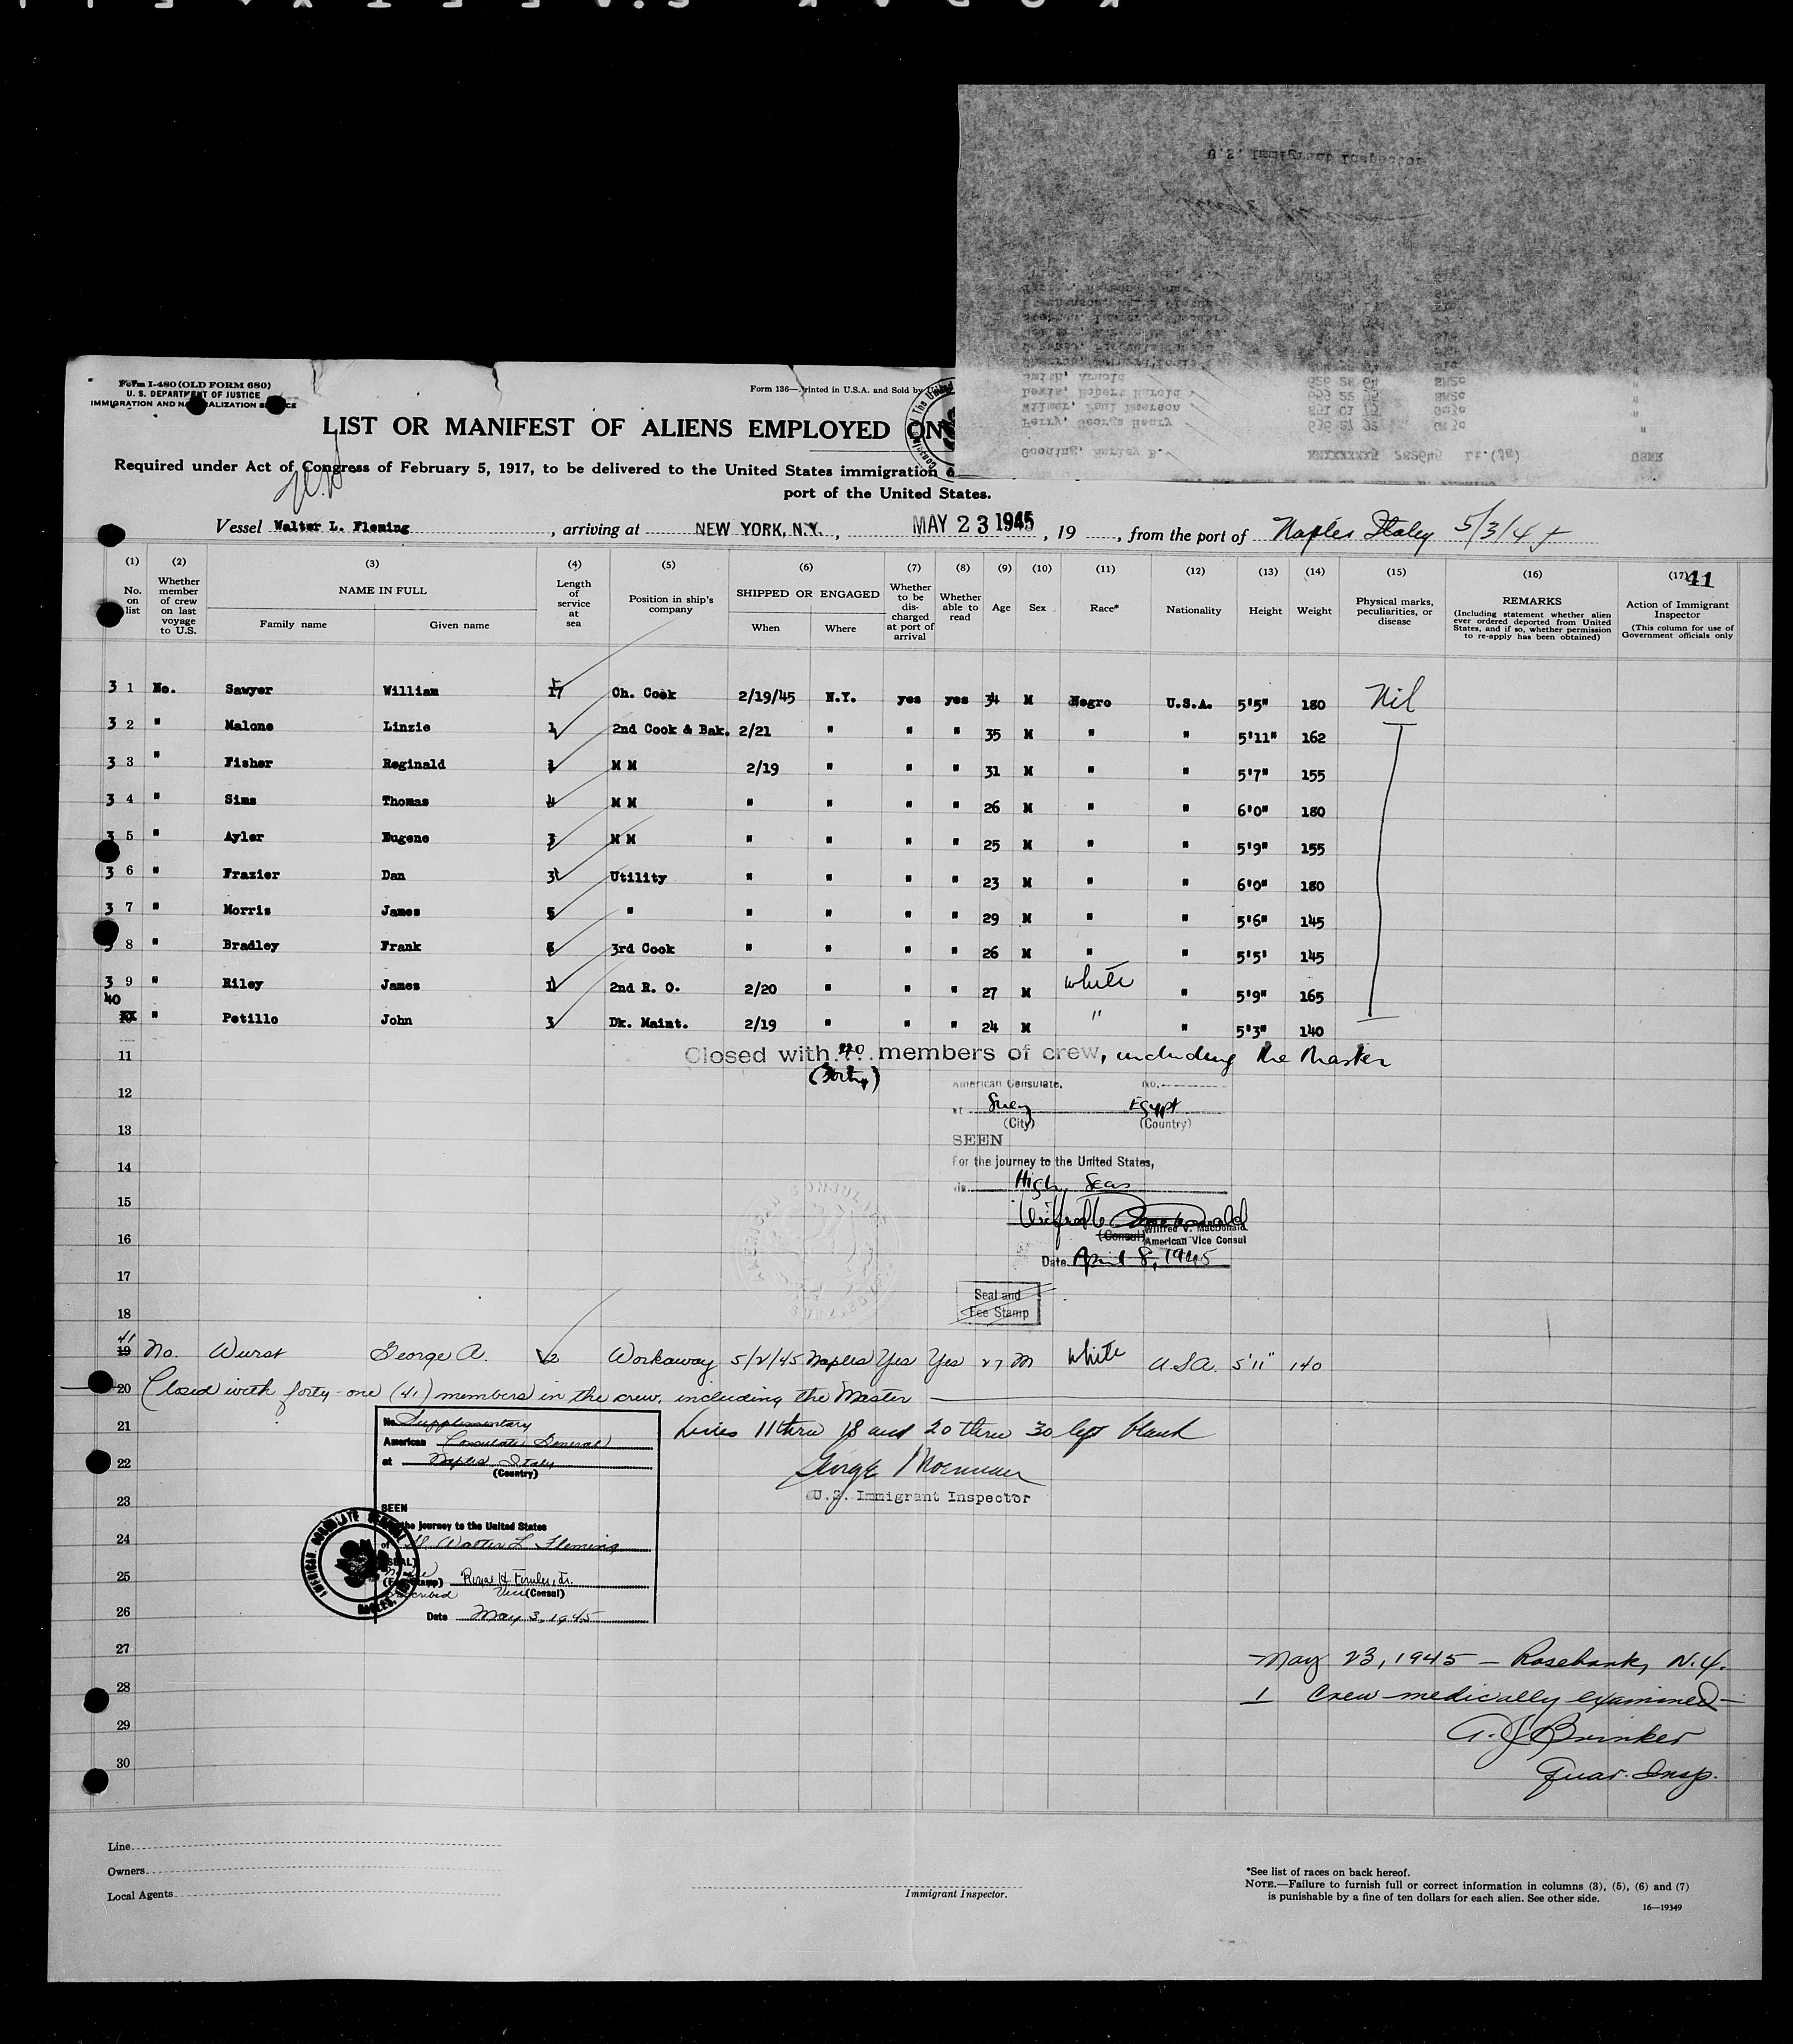 Form I-480 (OLD FORM 680)
U. S. DEPARTMENT OF JUSTICE
IMMIGRATION AND NATURALIZATION SERVICE
Form 136—Printed in U.S.A. and Sold by
LIST OR MANIFEST OF ALIENS EMPLOYED ON
Required under Act of Congress of February 5, 1917, to be delivered to the United States immigration
port of the United States.
U.S. Immigrant Inspector
Smith, Arnold 626 28 64 SM2c "
Lewis, Robert Harold SM2c "
Wilmer, Paul Emerson GM3c "
Perry, George Henry GM3c "
Gooding, Harley B. Lt.(jg) USNR
Vessel Walter L. Fleming, arriving at NEW YORK, N.Y., MAY 23 1945, 19 , from the port of Naples Italy 5/3/45
(1) (2) (3) (4) (5) (6) (7) (8) (9) (10) (11) (12) (13) (14) (15) (16) (17) 41
No. on list
Whether member of crew on last voyage to U.S.
NAME IN FULL
Family name
Given name
Length of service at sea
Position in ship's company
SHIPPED OR ENGAGED
When
Where
Whether to be discharged at port of arrival
Whether able to read
Age
Sex
Race*
Nationality
Height
Weight
Physical marks, peculiarities, or disease
REMARKS
(Including statement whether alien ever ordered deported from United States, and if so, whether permission to re-apply has been obtained)
Action of Immigrant Inspector
(This column for use of Government officials only
3 1 No. Sawyer William 17 Ch. Cook 2/19/45 N.Y. yes yes 34 M Negro U.S.A. 5'5" 180 Nil
3 2 " Malone Linzie 1 2nd Cook & Bak. 2/21 " " " 35 M " " 5'11" 162
3 3 " Fisher Reginald M M 2/19 " " " 31 M " " 5'7" 155
3 4 " Sims Thomas 4 M M " " " " 26 M " " 6'0" 180
3 5 " Ayler Eugene 3 M M " " " " 25 M " " 5'9" 155
3 6 " Frazier Dan 3 Utility " " " " 23 M " " 6'0" 180
3 7 " Morris James 5 " " " " " 29 M " " 5'6" 145
3 8 " Bradley Frank 3rd Cook " " " " 26 M " " 5'5' 145
3 9 " Riley James 2nd R. O. 2/20 " " " 27 M White " 5'9" 165
40 " Petillo John 3 Dk. Maint. 2/19 " " " 24 M " " 5'3" 140
11 Closed with 40 members of crew, including the Master
(Forty)
12
American Consulate, No.
at Suez Egypt
(City) (Country)
13
SEEN
14
For the journey to the United States,
15
via High Seas
16
Wilfred V. MacDonald
(Consul) American Vice Consul
Date April 8, 1945
17
Seal and
Fee Stamp
18
41
19 No. Wurst George A. 2 Workaway 5/2/45 Naples Yes Yes 27 M White U.S.A. 5'11" 140
20 Closed with forty-one (41) members in the crew, including the Master
21 Lines 11 thru 18 and 20 thru 30 left blank
No. Supplementary
American Consulate General
at Naples Italy
(Country)
22
U.S. Immigrant Inspector
23
SEEN
the journey to the United States
24
of Walter L. Fleming
AMERICAN CONSULATE GENERAL
NAPLES,
(SEAL)
25
(Fee Stamp)
Vice (Consul)
26
Date May 3, 1945
27 May 23, 1945 — Rosebank, N.Y.
28 1 Crew medically examined
29 A. J. Brinker
30 Quar. Insp.
Line
Owners
Local Agents
Immigrant Inspector.
*See list of races on back hereof.
NOTE.—Failure to furnish full or correct information in columns (3), (5), (6) and (7)
is punishable by a fine of ten dollars for each alien. See other side.
16—19349